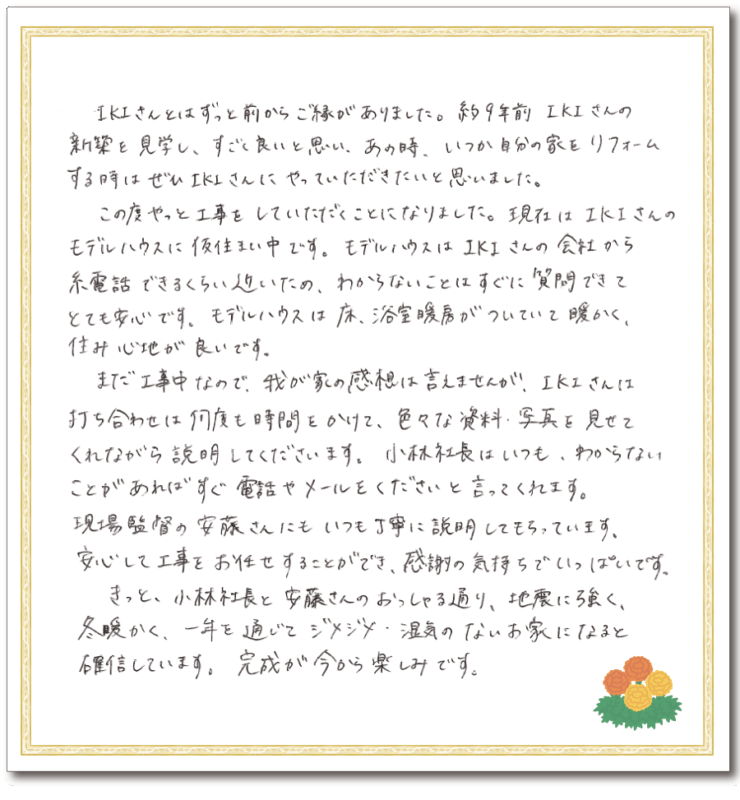 IKIさんとはずっと前からご縁がありました。約9年前 IKIさんの
新築を見学し、すごく良いと思い、あの時、いつか自分の家をリフォーム
する時はぜひIKIさんにやっていただきたいと思いました。
この度やっと工事をしていただくことになりました。現在はIKIさんの
モデルハウスに仮住まい中です。モデルハウスはIKIさんの会社から
糸電話できるくらい近いため、わからないことはすぐに質問できて
とても安心です。モデルハウスは床、浴室暖房がついていて暖かく、
住み心地が良いです。
まだ工事中なので、我が家の感想は言えませんが、IKIさんは
打ち合わせは何度も時間をかけて、色々な資料・写真を見せて
くれながら説明してくださいます。小林社長はいつも、わからない
ことがあればすぐ電話やメールをくださいと言ってくれます。
現場監督の安藤さんにもいつも丁寧に説明してもらっています。
安心して工事をお任せすることができ、感謝の気持ちでいっぱいです。
きっと、小林社長と安藤さんのおっしゃる通り、地震に強く、
冬暖かく、一年を通じてジメジメ・湿気のないお家になると
確信しています。完成が今から楽しみです。